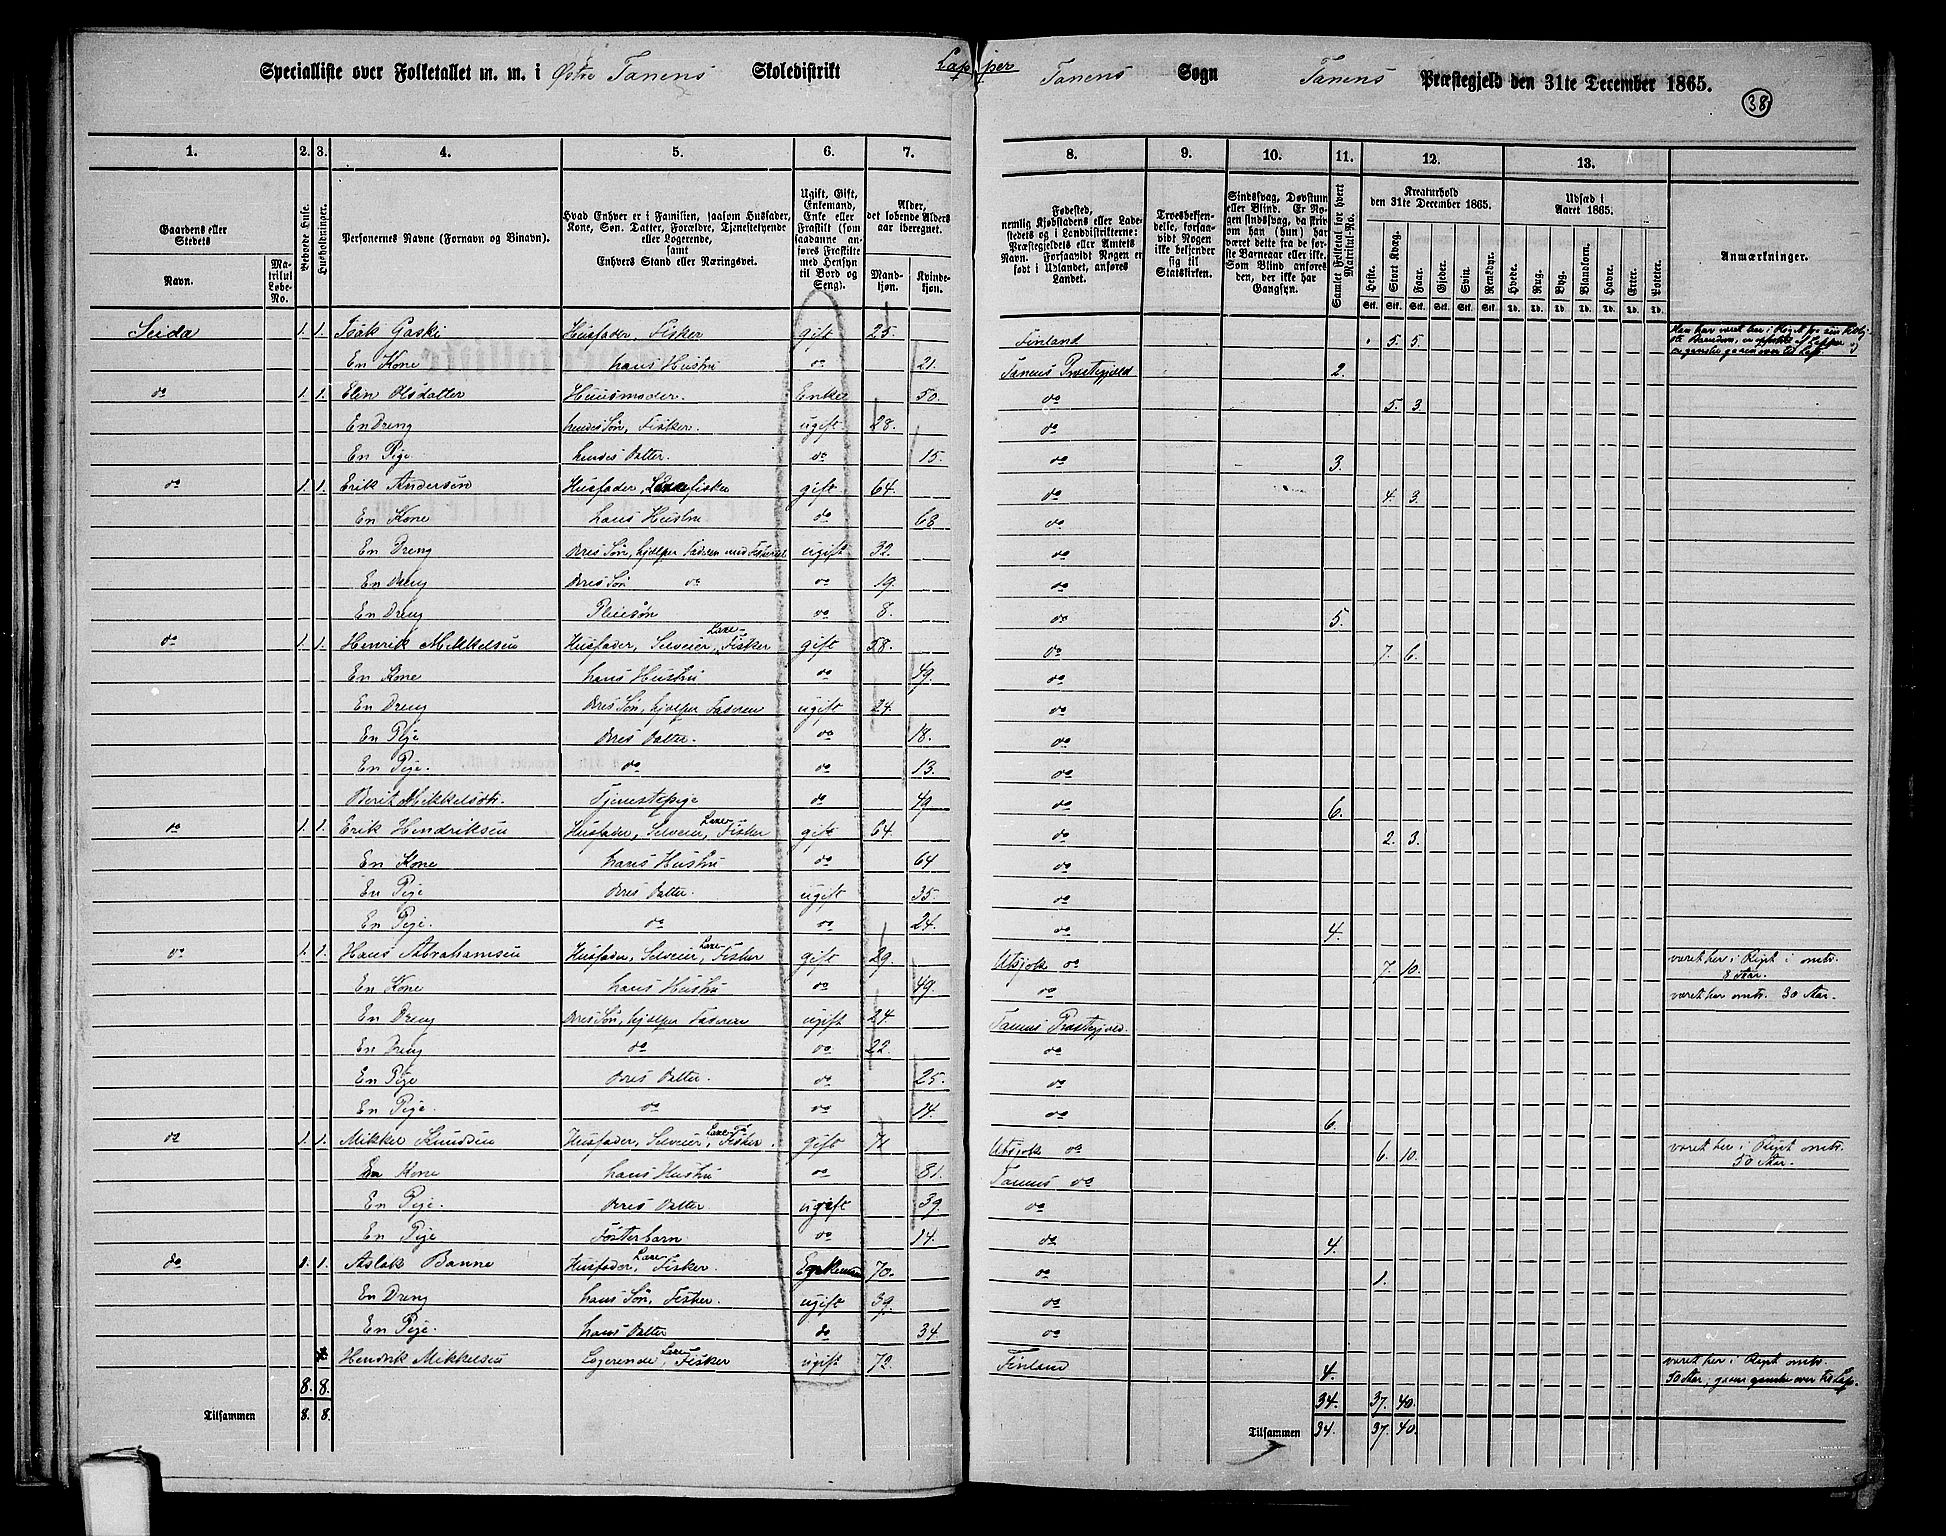 Specialliste over Folketallet m. m. i Østre Tanens Skoledistrikt Lapper Tanens Sogn Tanens Præstegjeld den 31te December 1865.
38
1. 2. 3. 4. 5. 6. 7. 8. 9. 10. 11. 12. 13.
Gaardens eller Stedets
Navn.
Matrikul Løbe-No.
Beboede Huse.
Husholdninger.
Personernes Navne (Fornavn og Binavn).
Hvad Enhver er i Familien, saasom Husfader, Kone, Søn, Datter, Forældre, Tjenestetyende eller Logerende, samt Enhvers Stand eller Næringsvei.
Ugift, Gift, Enkemand, Enke eller Fraskilt (som saadanne anføres Fraskilte med Hensyn til Bord og Seng).
Alder, det løbende Alders aar iberegnet.
Mandkjøn. Kvindekjøn.
Fødested, nemlig Kjøbstadens eller Ladestedets og i Landdistrikterne: Præstegjeldets eller Amtets Navn. Forsaavidt Nogen er født i Udlandet, anføres Landet.
Troesbekjendelse, forsaavidt Nogen ikke bekjender sig til Statskirken.
Sindssvag, Døvstum eller Blind. Er Nogen sindssvag, da skrives om han (hun) har været dette fra de første Barneaar eller ikke. Som Blind anføres den, der ikke har Gangsyn.
Samlet Folketal for hvert Matrikul-No.
Kreaturhold den 31te December 1865.
Heste. Stort Kvæg. Faar. Gjeder. Svin. Rensdyr.
Udsæd i Aaret 1865.
Hvede. Rug. Byg. Blandkorn. Havre. Erter. Poteter.
Anmærkninger.
Seida 1. 1. Isak Gaski Husfader, Fisker gift 25. Finland 5. 5.
En Kone hans Hustru do 21. Tanens Præstegjeld 2.
do 1. 1. Elen Olsdatter Huusmoder Enke 50. do 5. 3.
En Dreng hendes Søn, Fisker. ugift 28. do
En Pige hendes Datter. do 15. do 3.
do 1. 1. Erik Andersen Husfader, Laxefisker gift 64. do 4. 3.
En Kone hans Hustru do 68 do
En Dreng deres Søn, hjelper Faderen med Fiskeriet ugift 32. do
En Dreng deres Søn do do 19. do
En Dreng Pleiesøn do 8. do 5.
do 1. 1. Henrik Mikkelsen Husfader, Selveier, Laxe-Fisker gift 58. do 7. 6.
En Kone hans Hustru do 49. do
En Dreng deres Søn, hjelper Faderen ugift 24. do
En Pige deres Datter. do 18. do
En Pige. do do 13. do
Berit Mikkelsdtr. Tjenestepige do 49 do 6.
do 1. 1. Erik Hendriksen Husfader, Selveier, Laxe-Fisker gift 64. do 2. 3.
En Kone hans Hustru do 64 do
En Pige deres Datter. ugift 35. do
En Pige. do do 24. do 4.
do 1. 1. Hans Abrahamsen Husfader, Selveier, Laxe-Fisker gift 29. Utsjok do 7. 10. været her i Riget i omtr. 8 Aar.
En Kone hans Hustru do 49. do været her omtr. 30 Aar.
En Dreng deres Søn, hjelper Faderen ugift 24. Tanens Præstegjeld.
En Dreng do do 22. do
En Pige deres Datter. do 25. do
En Pige. do do 14. do 6.
do 1. 1. Mikkel Knudsen Husfader, Selveier, Laxe-Fisker. gift 71 Utsjok do 6. 10. været her i Riget omtr. 50 Aar.
En Kone hans Hustru do 81. Tanens do
En Pige. deres Datter ugift 39. do
En Pige Fosterbarn do 14. do 4.
do 1. 1. Aslak Banne Husfader, Laxe-Fisker. Enkemand 70. do 1.
En Dreng hans Søn, Fisker. ugift 39. do
En Pige. hans Datter do 34. do
Hendrik Mikkelsen Logerende, Laxe-Fisker ugift 72. Finland 4. været her i Riget omtr. 50 Aar, gaaet ganske over til Lap.
8. 8. 34. 37. 40.
Tilsammen 8. 8. Tilsammen 34. 37. 40.